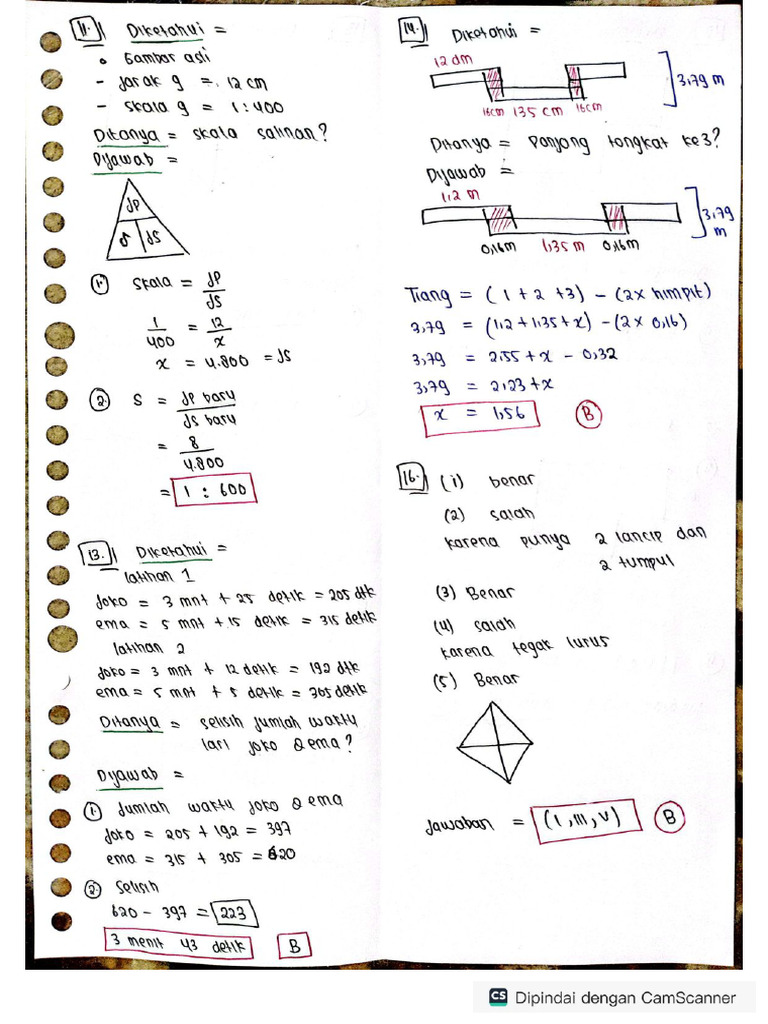 11. Diketahui =
• Gambar asli
- Jarak g = 12 cm
- Skala g = 1:400
Ditanya = skala salinan?
Dijawab =
JP
S JS
1. Skala = JP
JS
1 = 12
400 x
x = 4.800 = JS
2. S = JP baru
JS baru
= 8
4.800
= 1 : 600
13. Diketahui =
latihan 1
Joko = 3 mnt + 25 detik = 205 dtk
ema = 5 mnt + 15 detik = 315 detik
latihan 2
Joko = 3 mnt + 12 detik = 192 dtk
ema = 5 mnt + 5 detik = 305 detik
Ditanya = selisih jumlah waktu
lari Joko & ema?
Dijawab =
1. Jumlah waktu Joko & ema
Joko = 205 + 192 = 397
ema = 315 + 305 = 620
2. Selisih
620 - 397 = 223
3 menit 43 detik B
14. Diketahui =
12 dm
3,79 m
16cm 135 cm 16cm
Ditanya = Panjang tongkat ke3?
Dijawab =
1,2 m
3,79
m
0,16m 1,35 m 0,16m
Tiang = (1 + 2 + 3) - (2 x himpit)
3,79 = (1,2 + 1,35 + x) - (2 x 0,16)
3,79 = 2,55 + x - 0,32
3,79 = 2,23 + x
x = 1,56 B
16. (1) benar
(2) salah
karena punya 2 lancip dan
2 tumpul
(3) Benar
(4) salah
karena tegak lurus
(5) Benar
Jawaban = (I, III, V) B
CS Dipindai dengan CamScanner